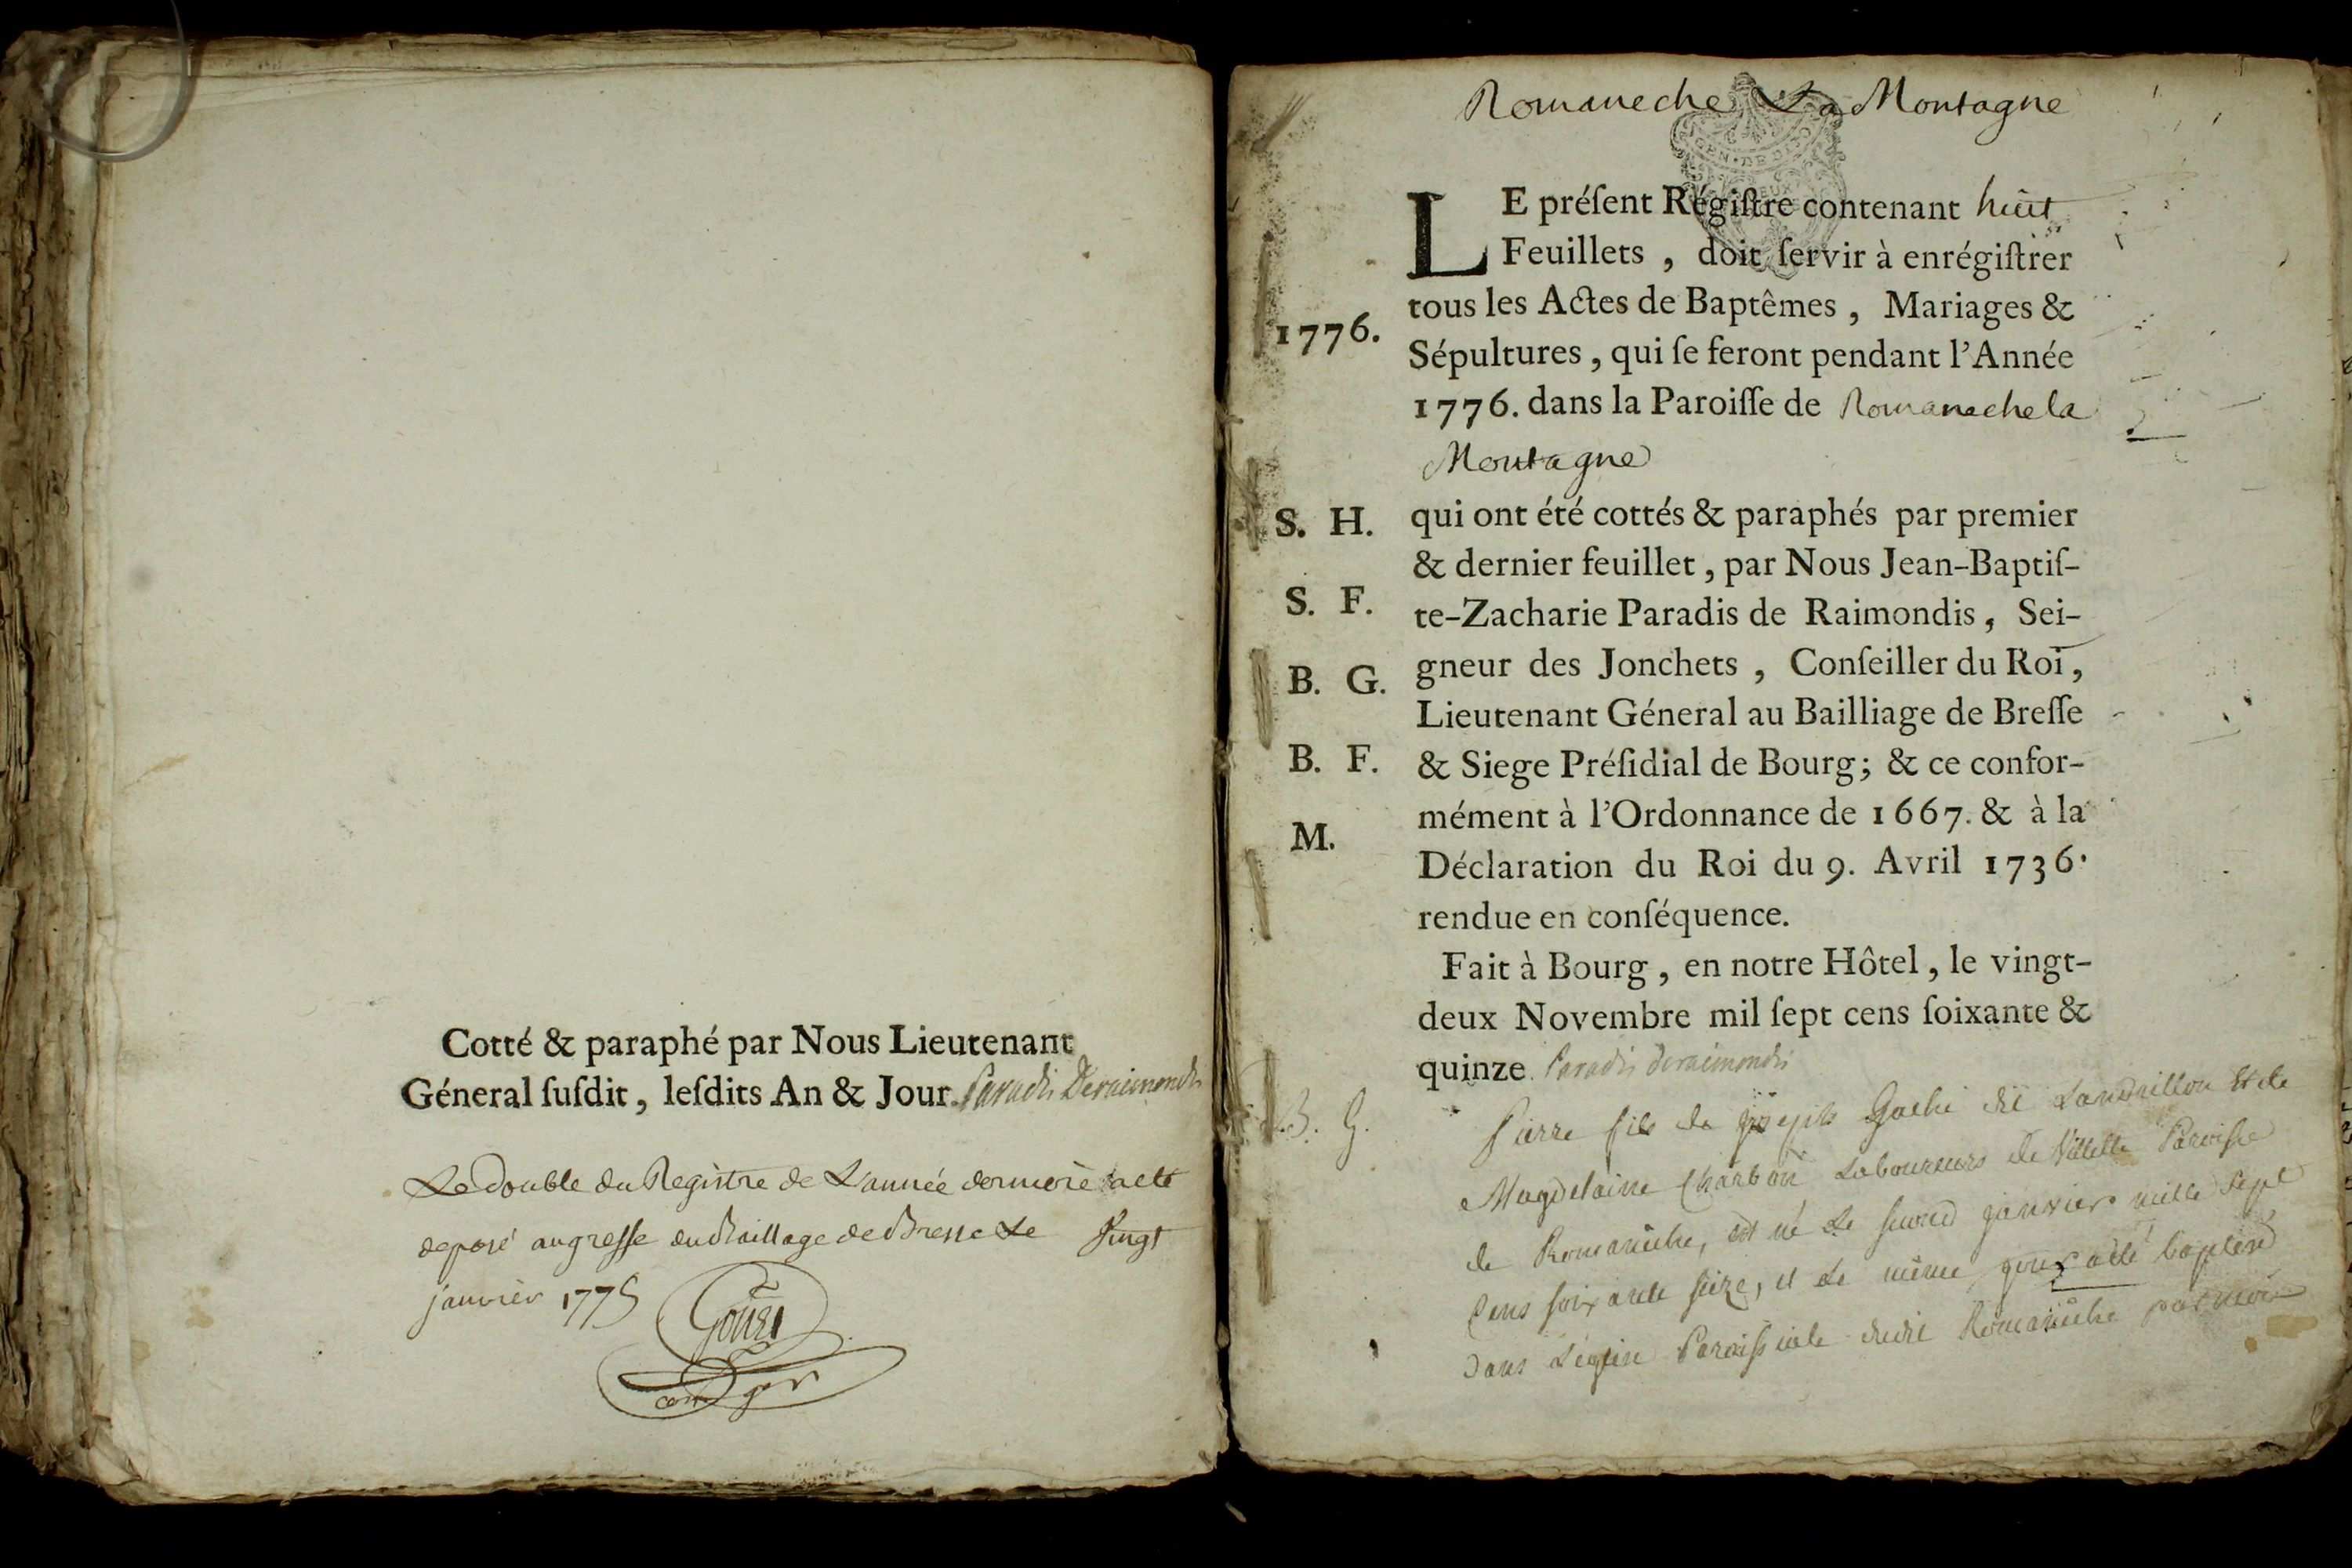 Cotté & paraphé par Nous Lieutenant
Géneral ſuſdit, leſdits An & Jour. Paradis Deraimondis
Le double du Registre de L'année derniere a eté
deposé au greffe du Baillage de Bresse Le Vingt
janvier 1775
Romaneche La Montagne
LE préſent Régiſtre contenant huit
Feuillets, doit ſervir à enrégiſtrer
tous les Actes de Baptêmes, Mariages &
1776.
Sépultures, qui ſe feront pendant l'Année
1776. dans la Paroiſſe de Romaneche la
Montagne
S. H.
qui ont été cottés & paraphés par premier
& dernier feuillet, par Nous Jean-Baptiſ-
S. F.
te-Zacharie Paradis de Raimondis, Sei-
B. G.
gneur des Jonchets, Conſeiller du Roi,
Lieutenant Géneral au Bailliage de Breſſe
B. F.
& Siege Préſidial de Bourg; & ce confor-
mément à l'Ordonnance de 1667. & à la
M.
Déclaration du Roi du 9. Avril 1736.
rendue en conſéquence.
Fait à Bourg, en notre Hôtel, le vingt-
deux Novembre mil ſept cens ſoixante &
quinze. Paradis Deraimondis
B. G.
Pierre fils de joseph Gathi dit et de
Magdelaine Charbon Laboureurs de Villette Paroisse
de Romaneche, est né Le second janvier mille sept
cens soixante seize, et Le même jour a été baptisé
Dans L'église Paroissiale dudit Romaneche par moi